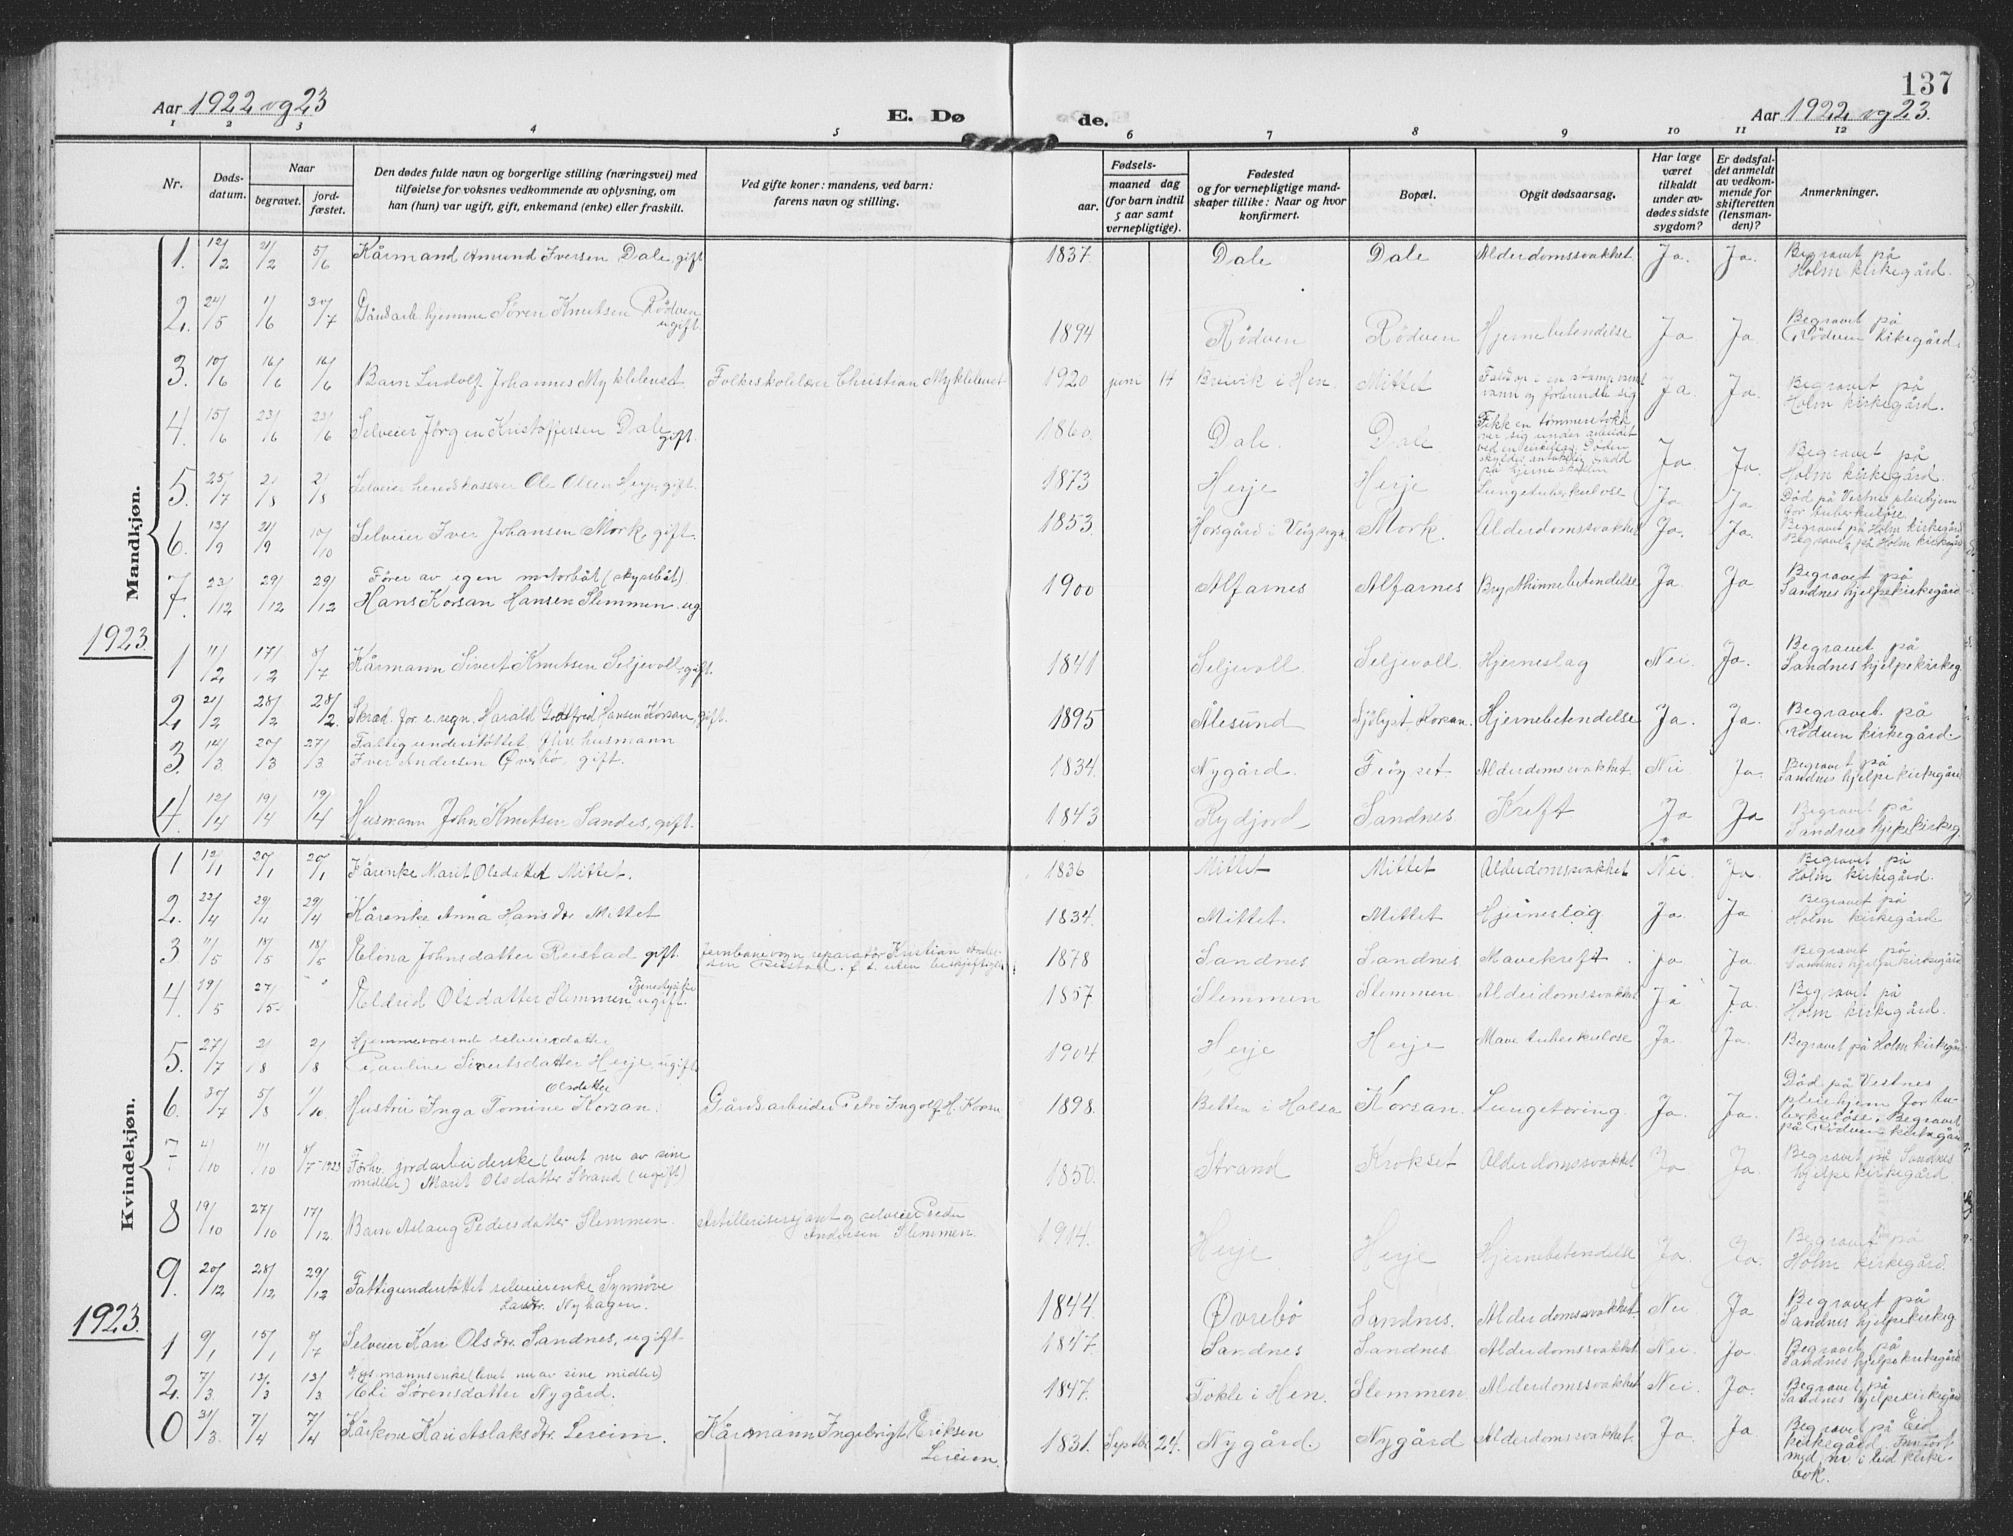 137
Aar 1922 og 23
E. Dø de.
Aar 1922 og 23.
1 2 3 4 5 6 7 8 9 10 11 12
Nr.
Døds-
datum.
Naar
begravet.
jord-
fæstet.
Den dødes fulde navn og borgerlige stilling (næringsvei) med
tilføielse for voksnes vedkommende av oplysning, om
han (hun) var ugift, gift, enkemand (enke) eller fraskilt.
Ved gifte koner: mandens, ved barn:
farens navn og stilling.
Fødsels-
aar.
maaned dag
(for barn indtil
5 aar samt
vernepligtige).
Fødested
og for vernepligtige mand-
skaper tillike: Naar og hvor
konfirmert.
Bopæl.
Opgit dødsaarsag.
Har læge
været
tilkaldt
under av-
dødes sidste
sygdom?
Er dødsfal-
det anmeldt
av vedkom-
mende for
skifteretten
(lensman-
den)?
Anmerkninger.
Mandkjøn.
1. 12/2 21/2 5/6 Kårmand Amund Iversen Dale, gift 1837. Dale Dale Alderdomssvakhet Ja. Ja. Begravet på
Holm kirkegård.
2. 24/5 1/6 30/7 Gårdsarb. hjemme Søren Knutsen Rødven
ugift. 1894 Rødven Rødven Hjernebetendelse Ja Ja. Begravet på
Rødven kirkegård.
3. 10/6 16/6 16/6 Barn Ludolf Johannes Myklebust Folkeskolelærer Christian Myklebust 1920 juni 14 Breivik i Hen Mittet Faldt i en stamp varmt
vann og forbrændte sig Ja. Ja. Begravet på
Holm kirkegård.
4. 15/6 23/6 23/6 Selveier Jørgen Kristoffersen Dale,
gift. 1860. Dale. Dale Fikk en tømmerstokk
over sig under arbeidet
ved en cirkelsag. Døden
skyldes antakelig
på hjerneskallen Ja. Ja. Begravet på
Holm kirkegård.
5. 25/7 2/8 2/8 Selveier herredskasser Ole Olsen Herje, gift. 1873 Herje Herje Lungetuberkulose Ja Ja Død på Vestnes pleiehjem
for tuberkuløse.
Begravet på Holm kirkegård
6. 13/9 21/9 10/10 Selveier Iver Johansen Mork, gift. 1853. Horsgård i Mork. Alderdomssvakhet Ja. Ja. Begravet på Holm kirkegård
7. 23/12 29/12 29/12 Fører av egen motorbåt (skyssbåt)
Hans Korsan Hansen Slemmen, ug. 1900 Alfarnes Alfarnes Brysthinnebetendelse Ja Ja Begravet på
Sandnes hjelpekirkegård
1923
1 11/2 17/2 8/7 Kårmann Sivert Knutsen Seljevoll, gift. 1841 Seljevoll Seljevoll Hjerneslag Nei. Ja. Begravet på
Sandnes hjelpekirkeg.
2. 21/2 28/2 28/2. Skræd. for e. regn. Harald Gottfred Hansen Korsan, gift. 1895 Ålesund Fjölyst, Korsan. Hjernebetendelse Ja. Ja. Begravet på
Rødven kirkegård.
3. 14/3 20/3 27/3 Fattigunderstøttet, förr husmann
Iver Andersen Øverbø, gift. 1834. Nygård. Frøyset Alderdomssvakhet. Nei Ja. Begravet på
Sandnes hjelpekirkegård
4. 12/4 19/4 19/4 Husmann John Knutsen Sandes, gift. 1843 Rydjord Sandnes Kreft Ja Ja Begravet på
Sandnes hjelpekirkeg.
Kvindekjøn.
1 12/1 20/1 20/1 Kårenke Marit Olsdatter Mittet. 1836 Mittet Mittet Alderdomssvakhet Nei. Ja. Begravet på
Holm kirkegård.
2. 22/4 29/4 29/4 Kårenke Anna Hansdtr Mittet 1834. Mittet. Mittet Hjerneslag Ja Ja Begravet på
Holm kirkegård
3 11/5 18/5 18/5 Elona Johnsdatter Reistad gift Jernbanevogn reparatør Kristian Ander-
sen Reistad. f. t. uten beskjeftigelse 1878 Sandnes Sandnes Mavekreft Ja Ja. Begravet på
Sandnes hjelpekirkegård
4. 19/5 27/5 Eldrid Olsdatter Slemmen, Tjenestepike
ugift. 1857 Slemmen Slemmen. Alderdomssvakhet Ja Ja. Begravet på
Holm kirkegård.
5. 27/7 2/8 2/8 Hjemmeværende selveierdatter
Pauline Sivertsdatter Herje, ugift 1904 Herje Herje Mavetuberkulose Ja. Ja. Begravet på Holm kirkegård
6. 30/7 5/8 1/10 Hustru Inga Tomine Olsdatter Korsan. Gårdsarbeider Petro Ingolf H. Korsan 1898. Botten i Halsa Korsan. Lungetæring. Ja. Ja. Død på Vestnes
pleiehjem for tu-
berkuløse. Begravet
på Rødven kirkegård
7 4/10 11/10 8/7-1923 Forhv. jordarbeiderske (levet nu av sine
midler) Marit Olsdatter Strand (ugift) 1850. Strand Krokset Alderdomssvakhet Ja Ja. Begravet på Sandnes
hjelpekirkegård
8 19/10 27/10 17/12. Barn Aslaug Pedersdatter Slemmen. Artillerisersjant og selveier Peder
Andersen Slemmen. 1914. Herje Herje Hjernebetendelse Ja. Ja. Begravet på
Holm kirkegård.
9. 20/12 28/12 29/12 Fattigunderstøttet selveierenke Synnöve
Larsdtr. Nyhagen. 1844. Øvrebö Sandnes. Alderdomssvakhet. Nei Ja Begravet på
Sandnes hjelpekirkeg.
1923.
1 9/1 15/1 8/7 Selveier Kari Olsdtr. Sandnes, ugift. 1847. Sandnes Sandnes. Alderdomssvakhet Nei. Ja. Begravet på
Sandnes hjelpekirkegård
2. 7/3 13/3 13/3 Husmannsenke (levet nu av sine midler)
Eli Sørensdatter Nygård. 1847. Tokle i Hen. Slemmen. Alderdomssvakhet Nei. Ja. Begravet på
Sandnes hjelpekirkegård
0 31/3. 7/4 7/4 Kårkone Kari Aslaksdtr. Lereim. Kårmann Ingebrigt Eriksen
Lereim. 1831. Septbr. 24. Nygård. Nygård Alderdomssvakhet. Ja. Ja. Begravet på Eid
kirkegård. Innført
med nr. i Eid kirke-
bok.